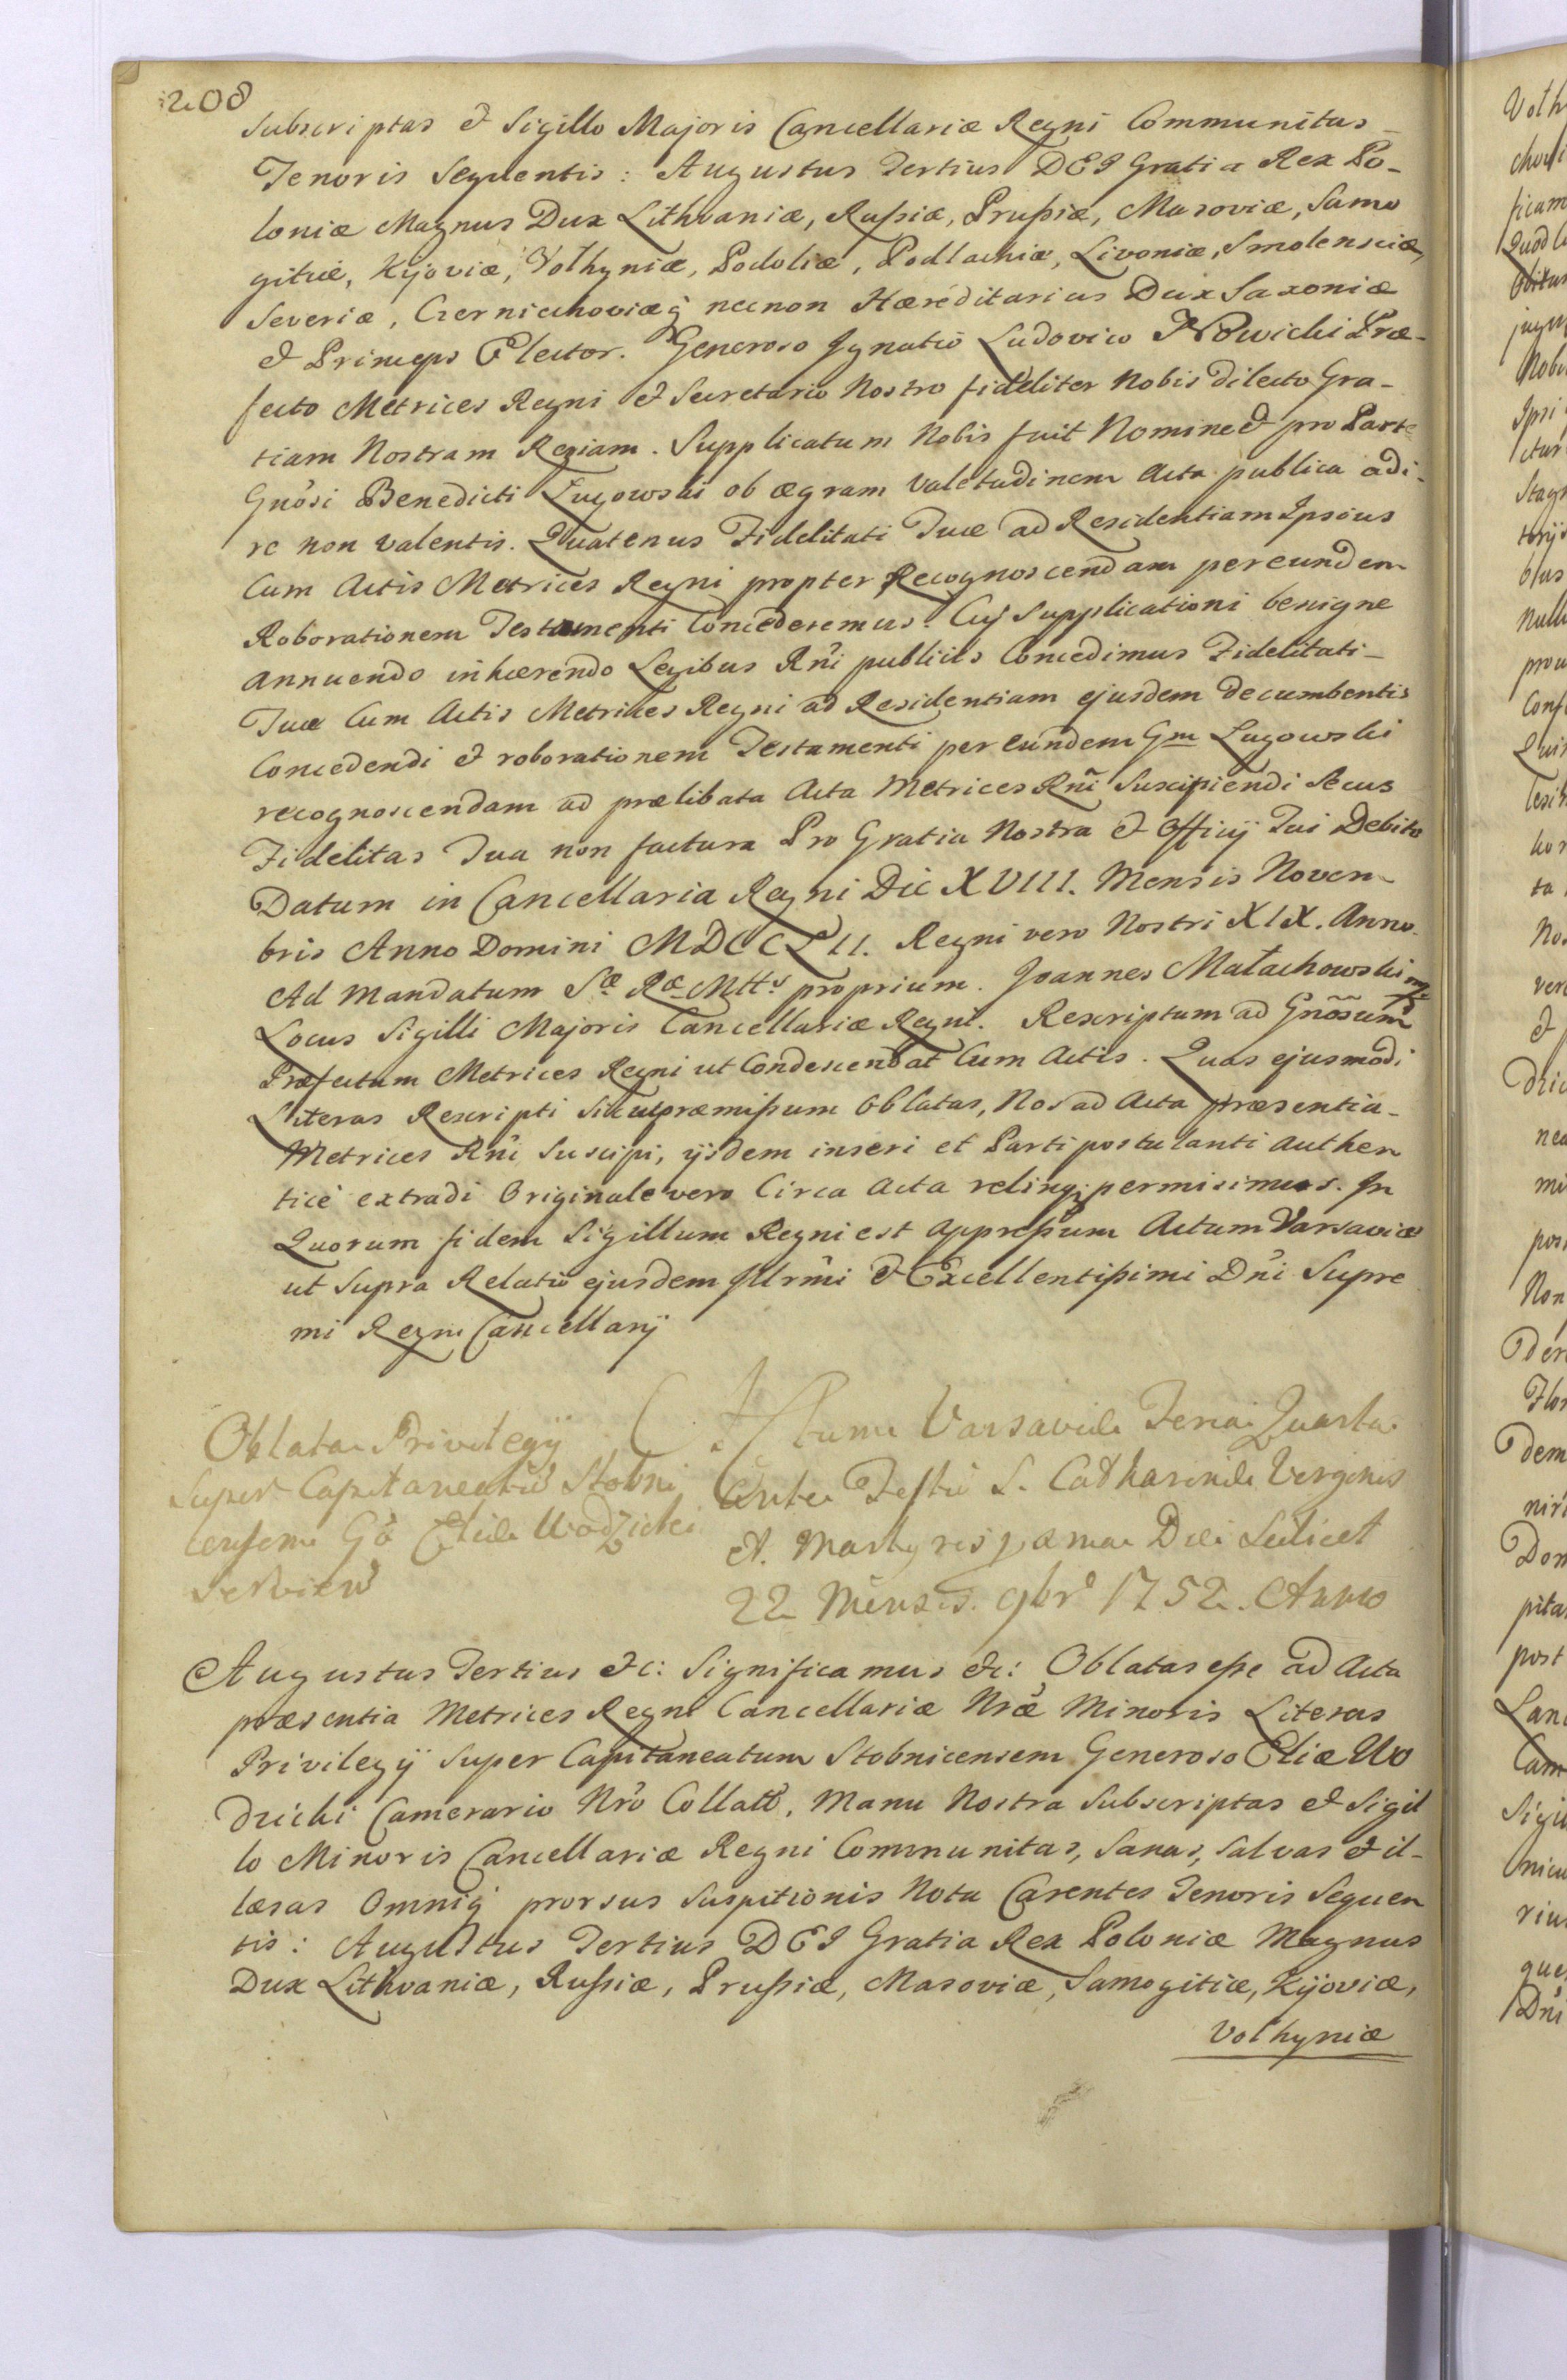 208
Subscriptas & Sigillo Majoris Cancellariæ Regni Communitas
Tenoris Sequentis: Augustus Tertius DEI Gratia Rex Po-
loniæ Magnus Dux Lithvaniæ, Rußiæ, Prußiæ, Masoviæ, Samo
gitiæ, Kijoviæ, Volhyniæ, Podoliæ, Podlachiæ, Livoniæ, Smolensciæ,
Severiæ, Czerniechoviæq́ necnon Hæreditarius Dux Saxoniæ
& Princeps Elector. Generoso Ignatio Ludovico Nowicki Præ-
fecto Metrices Regni & Secretario Nostro fideliter Nobis dilecto Gra-
tiam Nostram Regiam. Supplicatum Nobis fuit Nomine & pro Parte
Gnôsi Benedicti Ługowski ob ægram Valetudinem Acta publica adi-
re non valentis. Quatenus Fidelitati Tuæ ad Residentiam Ipsius
Cum Actis Metrices Regni propter Recognoscendam per eundem
Roborationem Testamenti Concederemus. Cuj Supplicationi benigne
annuendo inhærendo Legibus Rñi publicis Concedimus Fidelitati-
Tuæ Cum Actis Metrices Regni ad Residentiam ejusdem decumbentis
Concedendi & roborationem Testamenti per Eundem Gm Ługowski
recognoscendam ad prælibata Acta Metrices Rñi Suscipiendi Secus
Fidelitas Tua non factura Pro Gratia Nostra & Officij Tui Debito
Datum in Cancellaria Regni Die XVIII. Mensis Novem-
bris Anno Domini MDCCLII. Regni vero Nostri XIX. Anno.
Ad Mandatum Sæ Ræ Mttis proprium. Joannes Małachowski mp
Locus Sigilli Majoris Cancellariæ Regni. Rescriptum ad Gnõsum
Præfectum Metrices Regni ut Condescendat Cum Actis. Quas ejusmodi
Literas Rescripti Sicut præmißum Oblatas, Nos ad Acta præsentia-
Metrices Rñi Suscipi, ijsdem inseri et Parti postulanti authen
ticè extradi Originale vero Circa Acta relinqi permisimus. In
Quorum fidem Sigillum Regni est appreßum Actum Varsaviæ
ut Supra Relatio ejusdem Illrmi & Excellentißimi Dñi Supre
mi Regni Cancellarij
Oblata Privilegij
Super Capitaneatũ Stobni
censem Gô Eliæ Wodzicki
Serviens
Actum Varsaviæ Feria Quarta
Ante Festũ S. Catharinæ Virginis
et Martyris proxima Die Scilicet
22 Mensis 9bris 1752. Anno
Augustus Tertius &c: Significamus &c: Oblatas eße ad Acta
præsentia Metrices Regni Cancellariæ Nræ Minoris Literas
Privilegij Super Capitaneatum Stobnicensem Generoso Eliæ Wo
dzicki Camerario Nro Collatt. Manu Nostra Subscriptas & Sigil
lo Minoris Cancellariæ Regni Communitas, Sanas, Salvas & il-
læsas Omniq́ prorsus Suspitionis Nota Carentes Tenoris Sequen
tis: Augustus Tertius DEI Gratia Rex Poloniæ Magnus
Dux Lithvaniæ, Rußiæ, Prußiæ, Masoviæ, Samogitiæ, Kijoviæ,
Volhyniæ